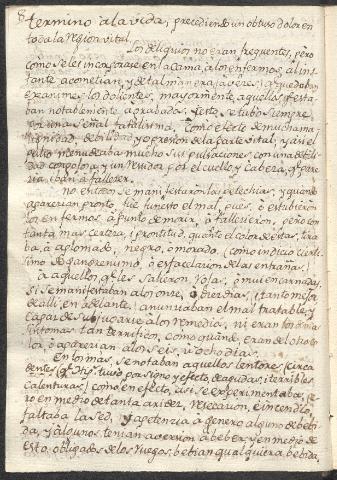 8
termino à la vida, precediendo un obtuso dolor en
toda la Region vital.
Los deliquios no eran frequentes, pero
como se les incorporase en la cama à los enfermos, al ins-
tante acometian, y de tal manera (à veces) q.e quedaban
exanimes los dolientes, mayormente aquellos q.e esta-
ban notablemente agravados. Y esto se tubo siempre
por una señal fatalisima, como efecto de mucha ma-
lignidad, debilidad, y opresion de la parte vital, y asi el
pulso menudeaba mucho sus pulsaciones, con una debili-
dad congojosa, y un sudor por el cuello, y cabeza, q.e pare-
cia iban à fallecer.
No en todos se manifestaron las petechias, y quando
aparecian pronto, fue funesto el mal, pues, ò estubieron
los enfermos à punto de morir, ò fallecieron, pero con
tanta mas certeza, i prontitud, quanto el color de estas, tira-
ba, à aplomado, negro, ò morado, como indicio cierti-
simo de gangrenismo, ò esfacelacion de las entrañas.
A aquellos, q.e les salieron rojas, ò mui encarnadas,
si se manifestaban à los onze, ò diez dias, (tanto mejor
de alli, en adelante) anunciaban el mal tratable, y
capaz de subjugarse à los remedios, ni eran tan de ma-
sintomas tan terrificos, como quando eran del otro co-
lor, ò aparecian à los seis, ù ocho dias.
En los mas, se notaban aquellos lentores (cerca
dentes, q.e Hip. tubo por signo, y efecto, de agudas, i terribles
calenturas) como en efecto, asi se experimentaba, pe-
ro en medio de tanta aridez, resecacion, è incendio,
faltaba la sed, y apetencia à genero alguno de bebi-
da, y algunos, tenian aversion à beber, y en medio de
esto, obligados de los ruegos, bebian qualquiera bebida,